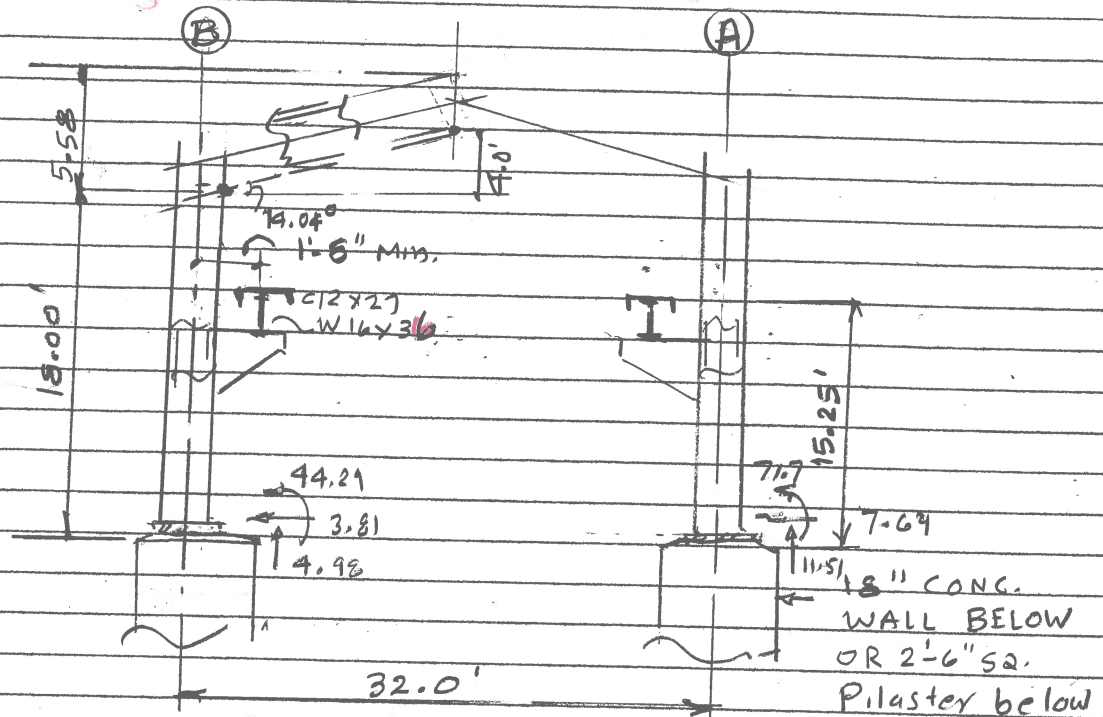 B
A
5.58
4.0'
14.04°
1'-6" MIN.
C12 X 27
W 16 X 36
18.00'
15.25'
44.29
3.81
4.98
71.7
7.64
11.51
18" CONC.
WALL BELOW
OR 2'-6" SQ.
Pilaster below
32.0'